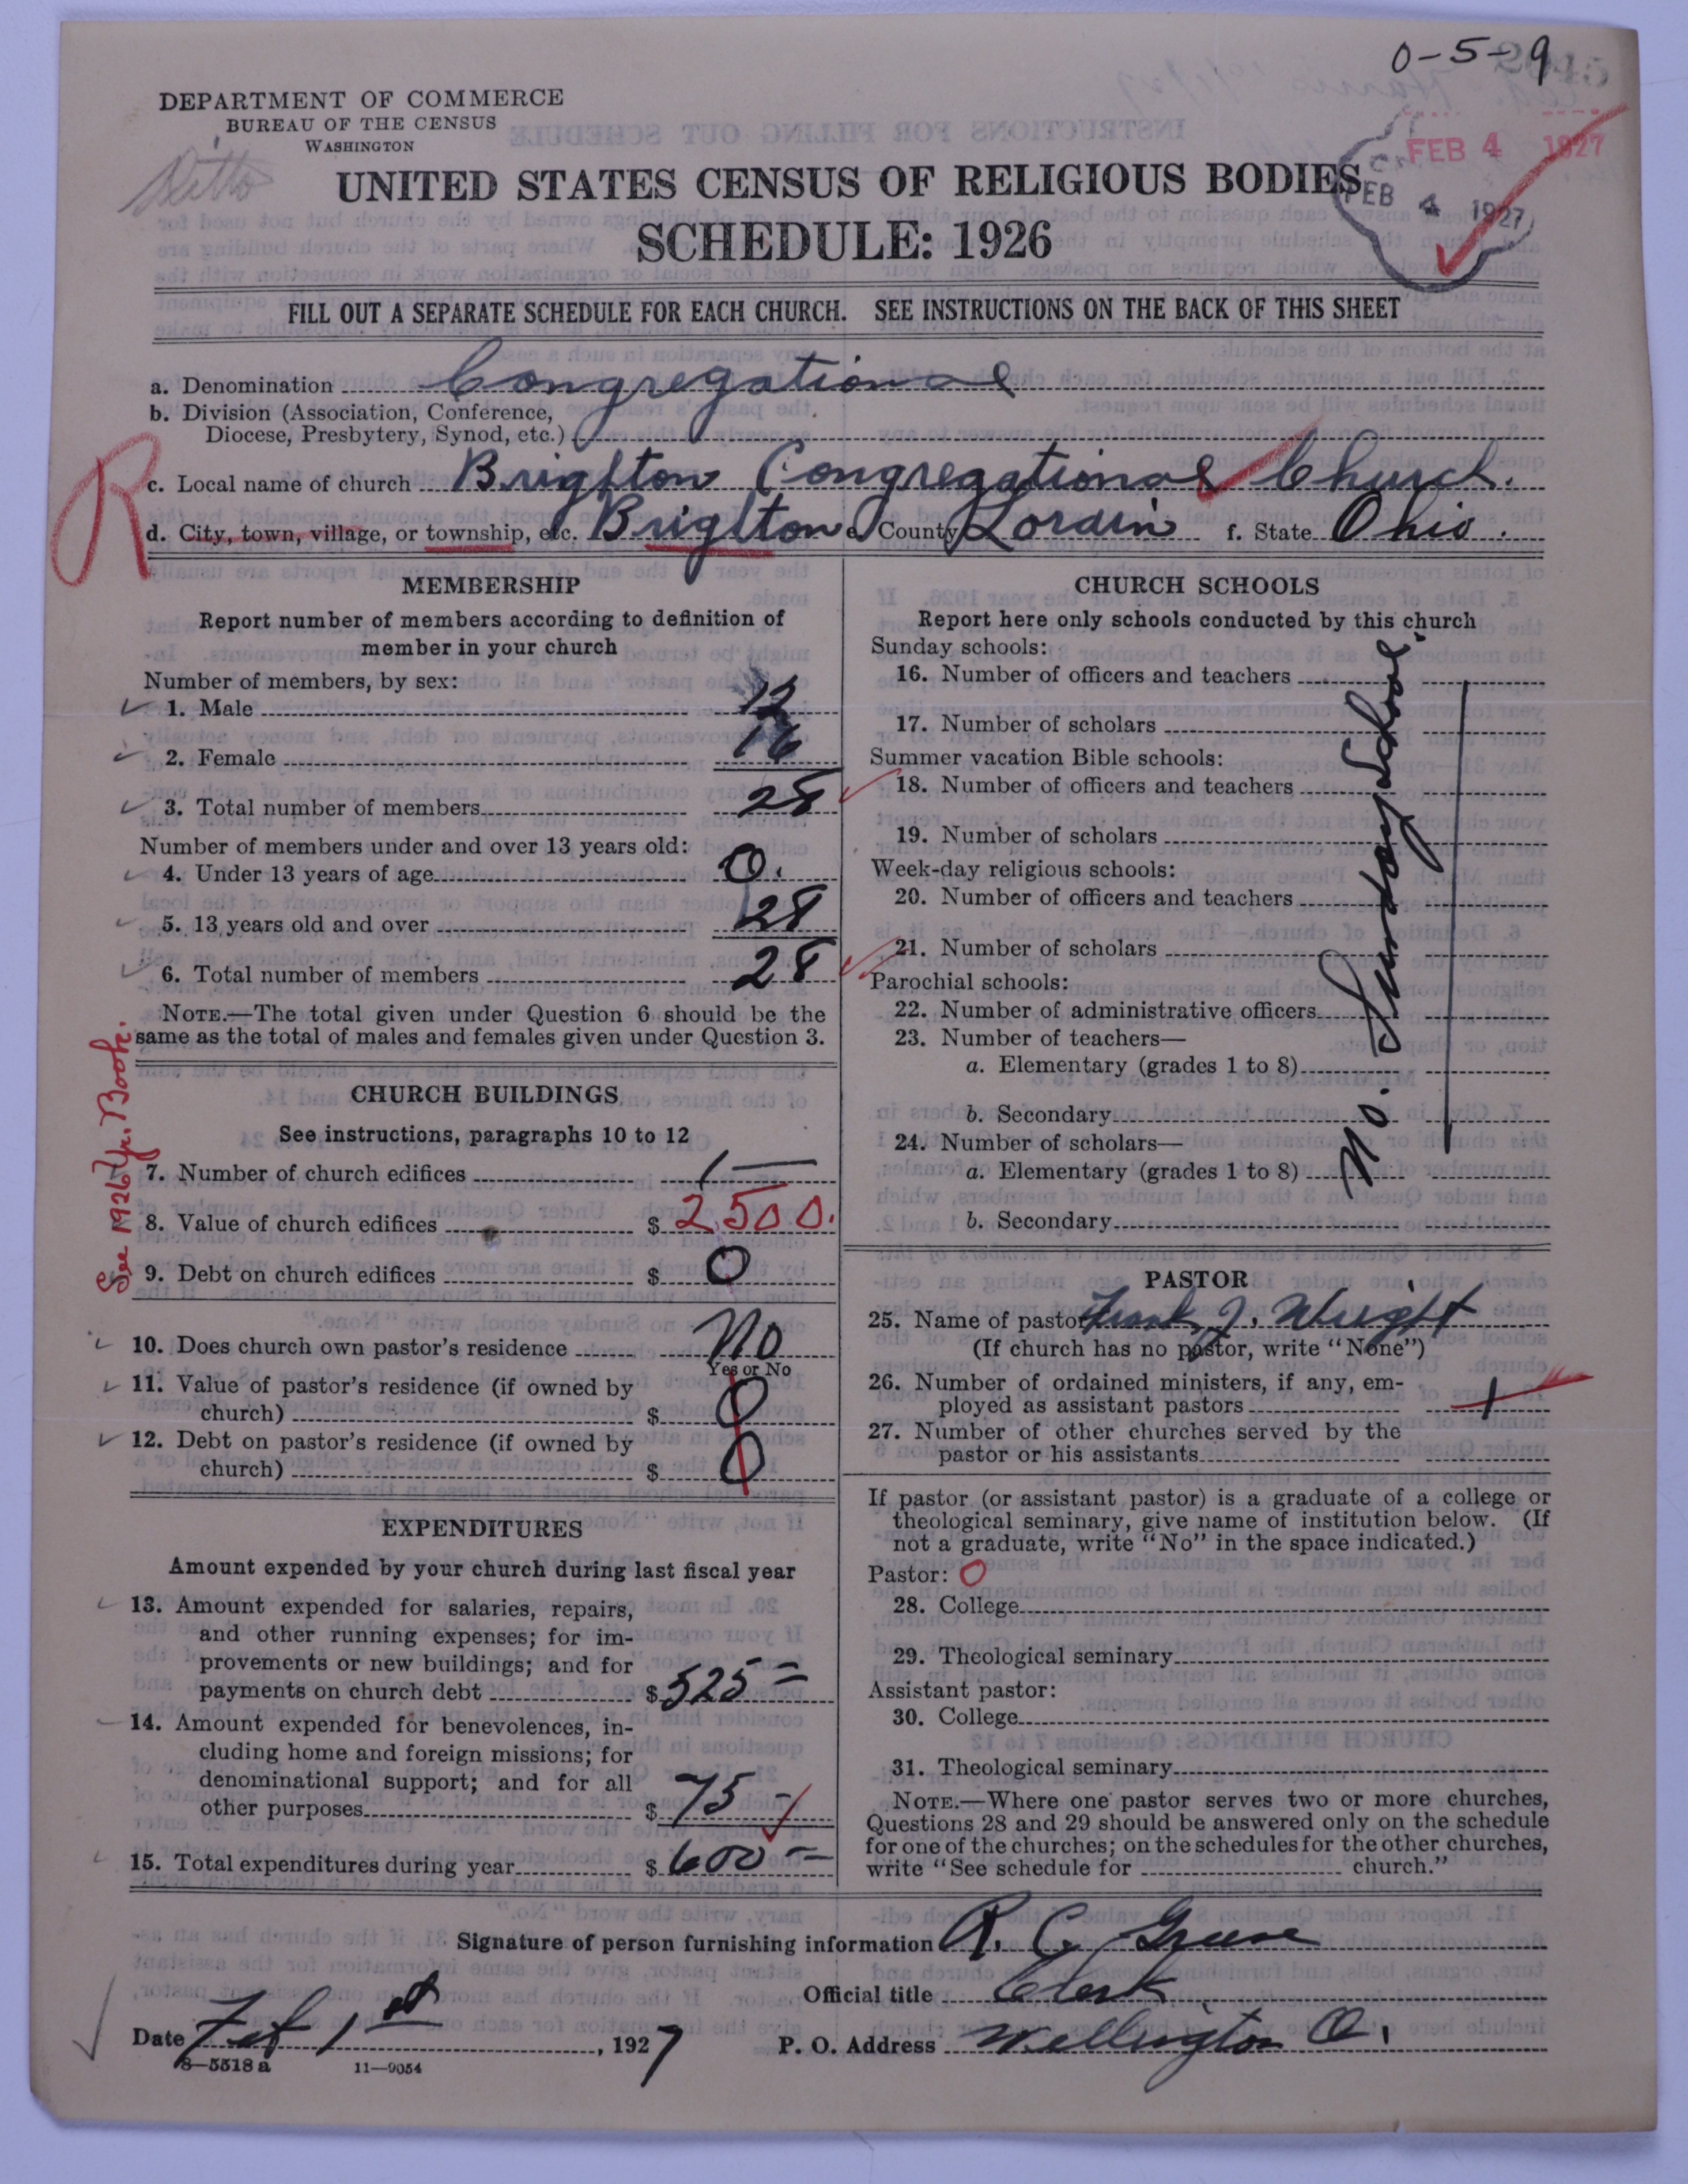 0-5-9
DEPARTMENT OF COMMERCE
BUREAU OF THE CENSUS
WASHINGTON
Ditto
FEB 4 1927
FEB 4 1927
UNITED STATES CENSUS OF RELIGIOUS BODIES
SCHEDULE: 1926
FILL OUT A SEPARATE SCHEDULE FOR EACH CHURCH. SEE INSTRUCTIONS ON THE BACK OF THIS SHEET
a. Denomination Congregational
b. Division (Association, Conference,
Diocese, Presbytery, Synod, etc.)
R
c. Local name of church Brighton Congregational Church.
d. City, town, village, or township, etc. Brighton e. County Lorain f. State Ohio.
MEMBERSHIP
Report number of members according to definition of
member in your church
Number of members, by sex:
1. Male 12
2. Female 16
3. Total number of members 28
Number of members under and over 13 years old:
4. Under 13 years of age 0.
5. 13 years old and over 28
6. Total number of members 28
NOTE.—The total given under Question 6 should be the
same as the total of males and females given under Question 3.
See 1926 Yr. Book.
CHURCH BUILDINGS
See instructions, paragraphs 10 to 12
7. Number of church edifices 1
8. Value of church edifices $ 2500.
9. Debt on church edifices $ 0
10. Does church own pastor's residence No
Yes or No
11. Value of pastor's residence (if owned by
church) $ 0
12. Debt on pastor's residence (if owned by
church) $ 0
EXPENDITURES
Amount expended by your church during last fiscal year
13. Amount expended for salaries, repairs,
and other running expenses; for im-
provements or new buildings; and for
payments on church debt $ 525=
14. Amount expended for benevolences, in-
cluding home and foreign missions; for
denominational support; and for all
other purposes $ 75-
15. Total expenditures during year $ 600=
CHURCH SCHOOLS
Report here only schools conducted by this church
Sunday schools:
16. Number of officers and teachers
17. Number of scholars
Summer vacation Bible schools:
18. Number of officers and teachers
19. Number of scholars
Week-day religious schools:
20. Number of officers and teachers
21. Number of scholars
Parochial schools:
22. Number of administrative officers
23. Number of teachers—
a. Elementary (grades 1 to 8)
b. Secondary
24. Number of scholars—
a. Elementary (grades 1 to 8)
b. Secondary
No. Sunday School
PASTOR
25. Name of pastor Frank J. Wright
(If church has no pastor, write "None")
26. Number of ordained ministers, if any, em-
ployed as assistant pastors 1
27. Number of other churches served by the
pastor or his assistants
If pastor (or assistant pastor) is a graduate of a college or
theological seminary, give name of institution below. (If
not a graduate, write "No" in the space indicated.)
Pastor: O
28. College
29. Theological seminary
Assistant pastor:
30. College
31. Theological seminary
NOTE.—Where one pastor serves two or more churches,
Questions 28 and 29 should be answered only on the schedule
for one of the churches; on the schedules for the other churches,
write "See schedule for church."
Signature of person furnishing information R. C. Greene
Official title Clerk
Date Feb 1st, 1927 P. O. Address Wellington O.
8—5518 a 11—9054